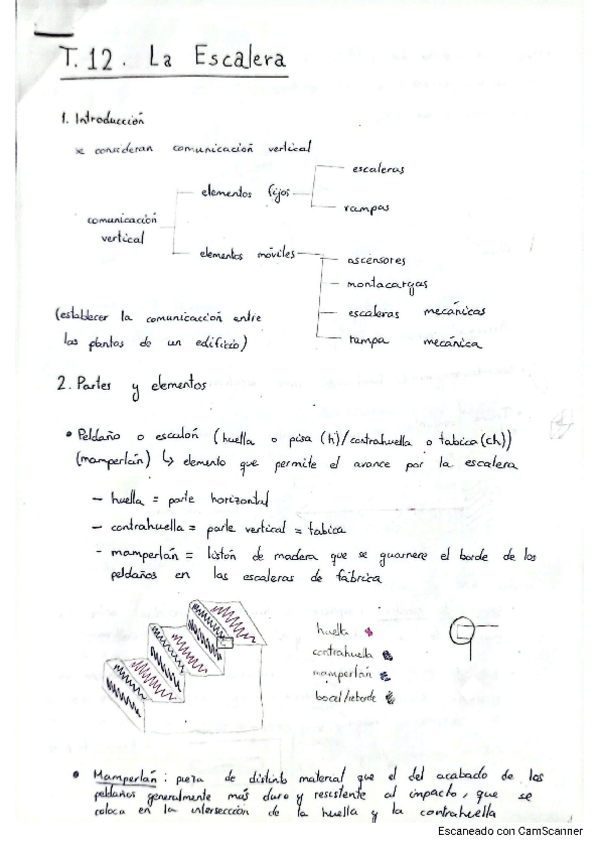 T.12. La Escalera
1. Introducción
se consideran comunicación vertical
escaleras
elementos fijos
rampas
comunicación
vertical
elementos móviles
ascensores
montacargas
escaleras mecánicas
rampa mecánica
(establecer la comunicación entre
las plantas de un edificio)
2. Partes y elementos
• Peldaño o escalón (huella o pisa (h)/contrahuella o tabica (ch))
(mamperlán) ↳ elemento que permite el avance por la escalera
– huella = parte horizontal
– contrahuella = parte vertical = tabica
- mamperlán = listón de madera que se guarnere el borde de los
peldaños en las escaleras de fábrica
huella
contrahuella
mamperlán
bocel/reborde
• Mamperlán: pieza de distinto material que el del acabado de los
peldaños generalmente más duro y resistente al impacto, que se
coloca en la intersección de la huella y la contrahuella
Escaneado con CamScanner